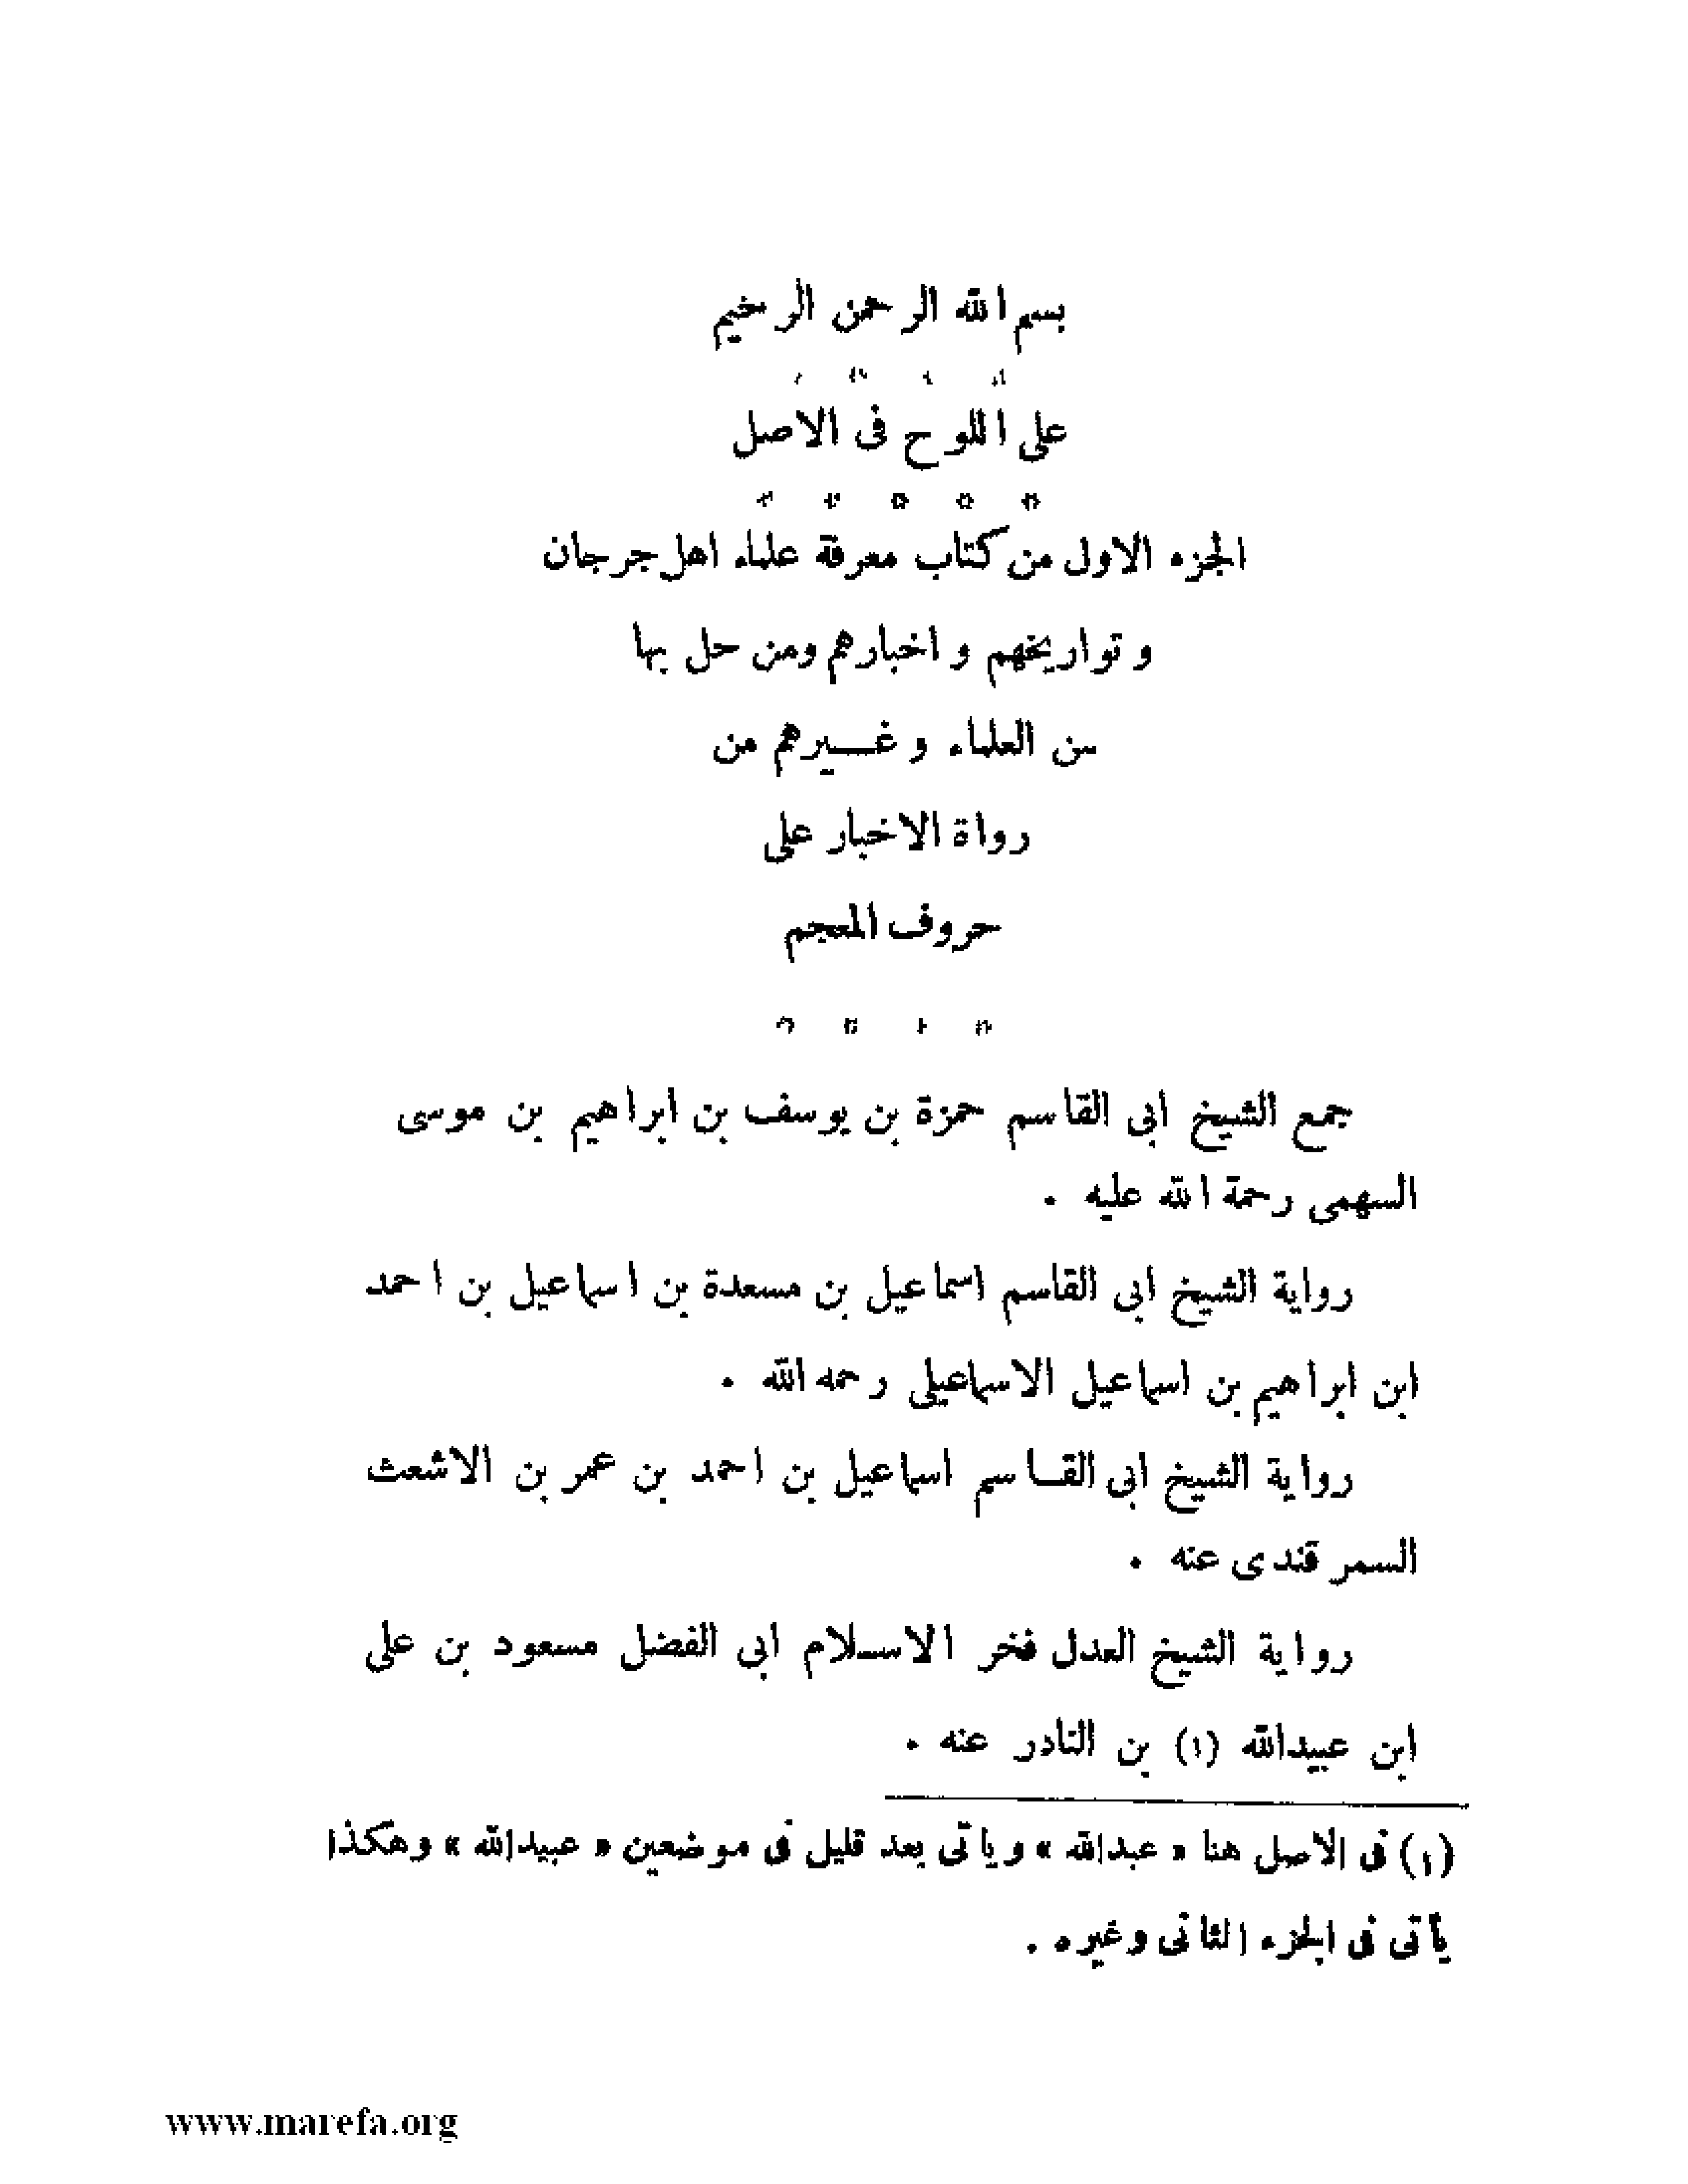 بسم الله الرحمن الرحيم
على اللوح فى الاصل
الجزء الاول من كتاب معرفة علماء اهل جرجان
و تواريخهم و اخبارهم ومن حل بها
من العلماء و غيرهم من
رواة الاخبار على
حروف المعجم
جمع الشيخ ابى القاسم حمزة بن يوسف بن ابراهيم بن موسى
السهمى رحمة الله عليه .
رواية الشيخ ابى القاسم اسماعيل بن مسعدة بن اسماعيل بن احمد
ابن ابراهيم بن اسماعيل الاسماعيلى رحمه الله .
رواية الشيخ ابى القاسم اسماعيل بن احمد بن عمر بن الاشعث
السمرقندى عنه .
رواية الشيخ العدل فخر الاسلام ابى الفضل مسعود بن على
ابن عبيدالله (١) بن النادر عنه .
(١) فى الاصل هنا « عبدالله » و يأتى بعد قليل فى موضعين « عبيدالله » وهكذا
يأتى فى الجزء الثانى وغيره .
www.marefa.org